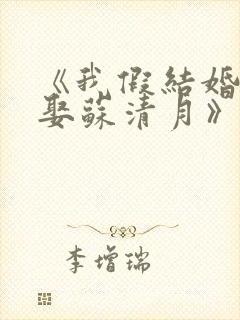 《我假結婚
娶蘇清月》
李增瑞